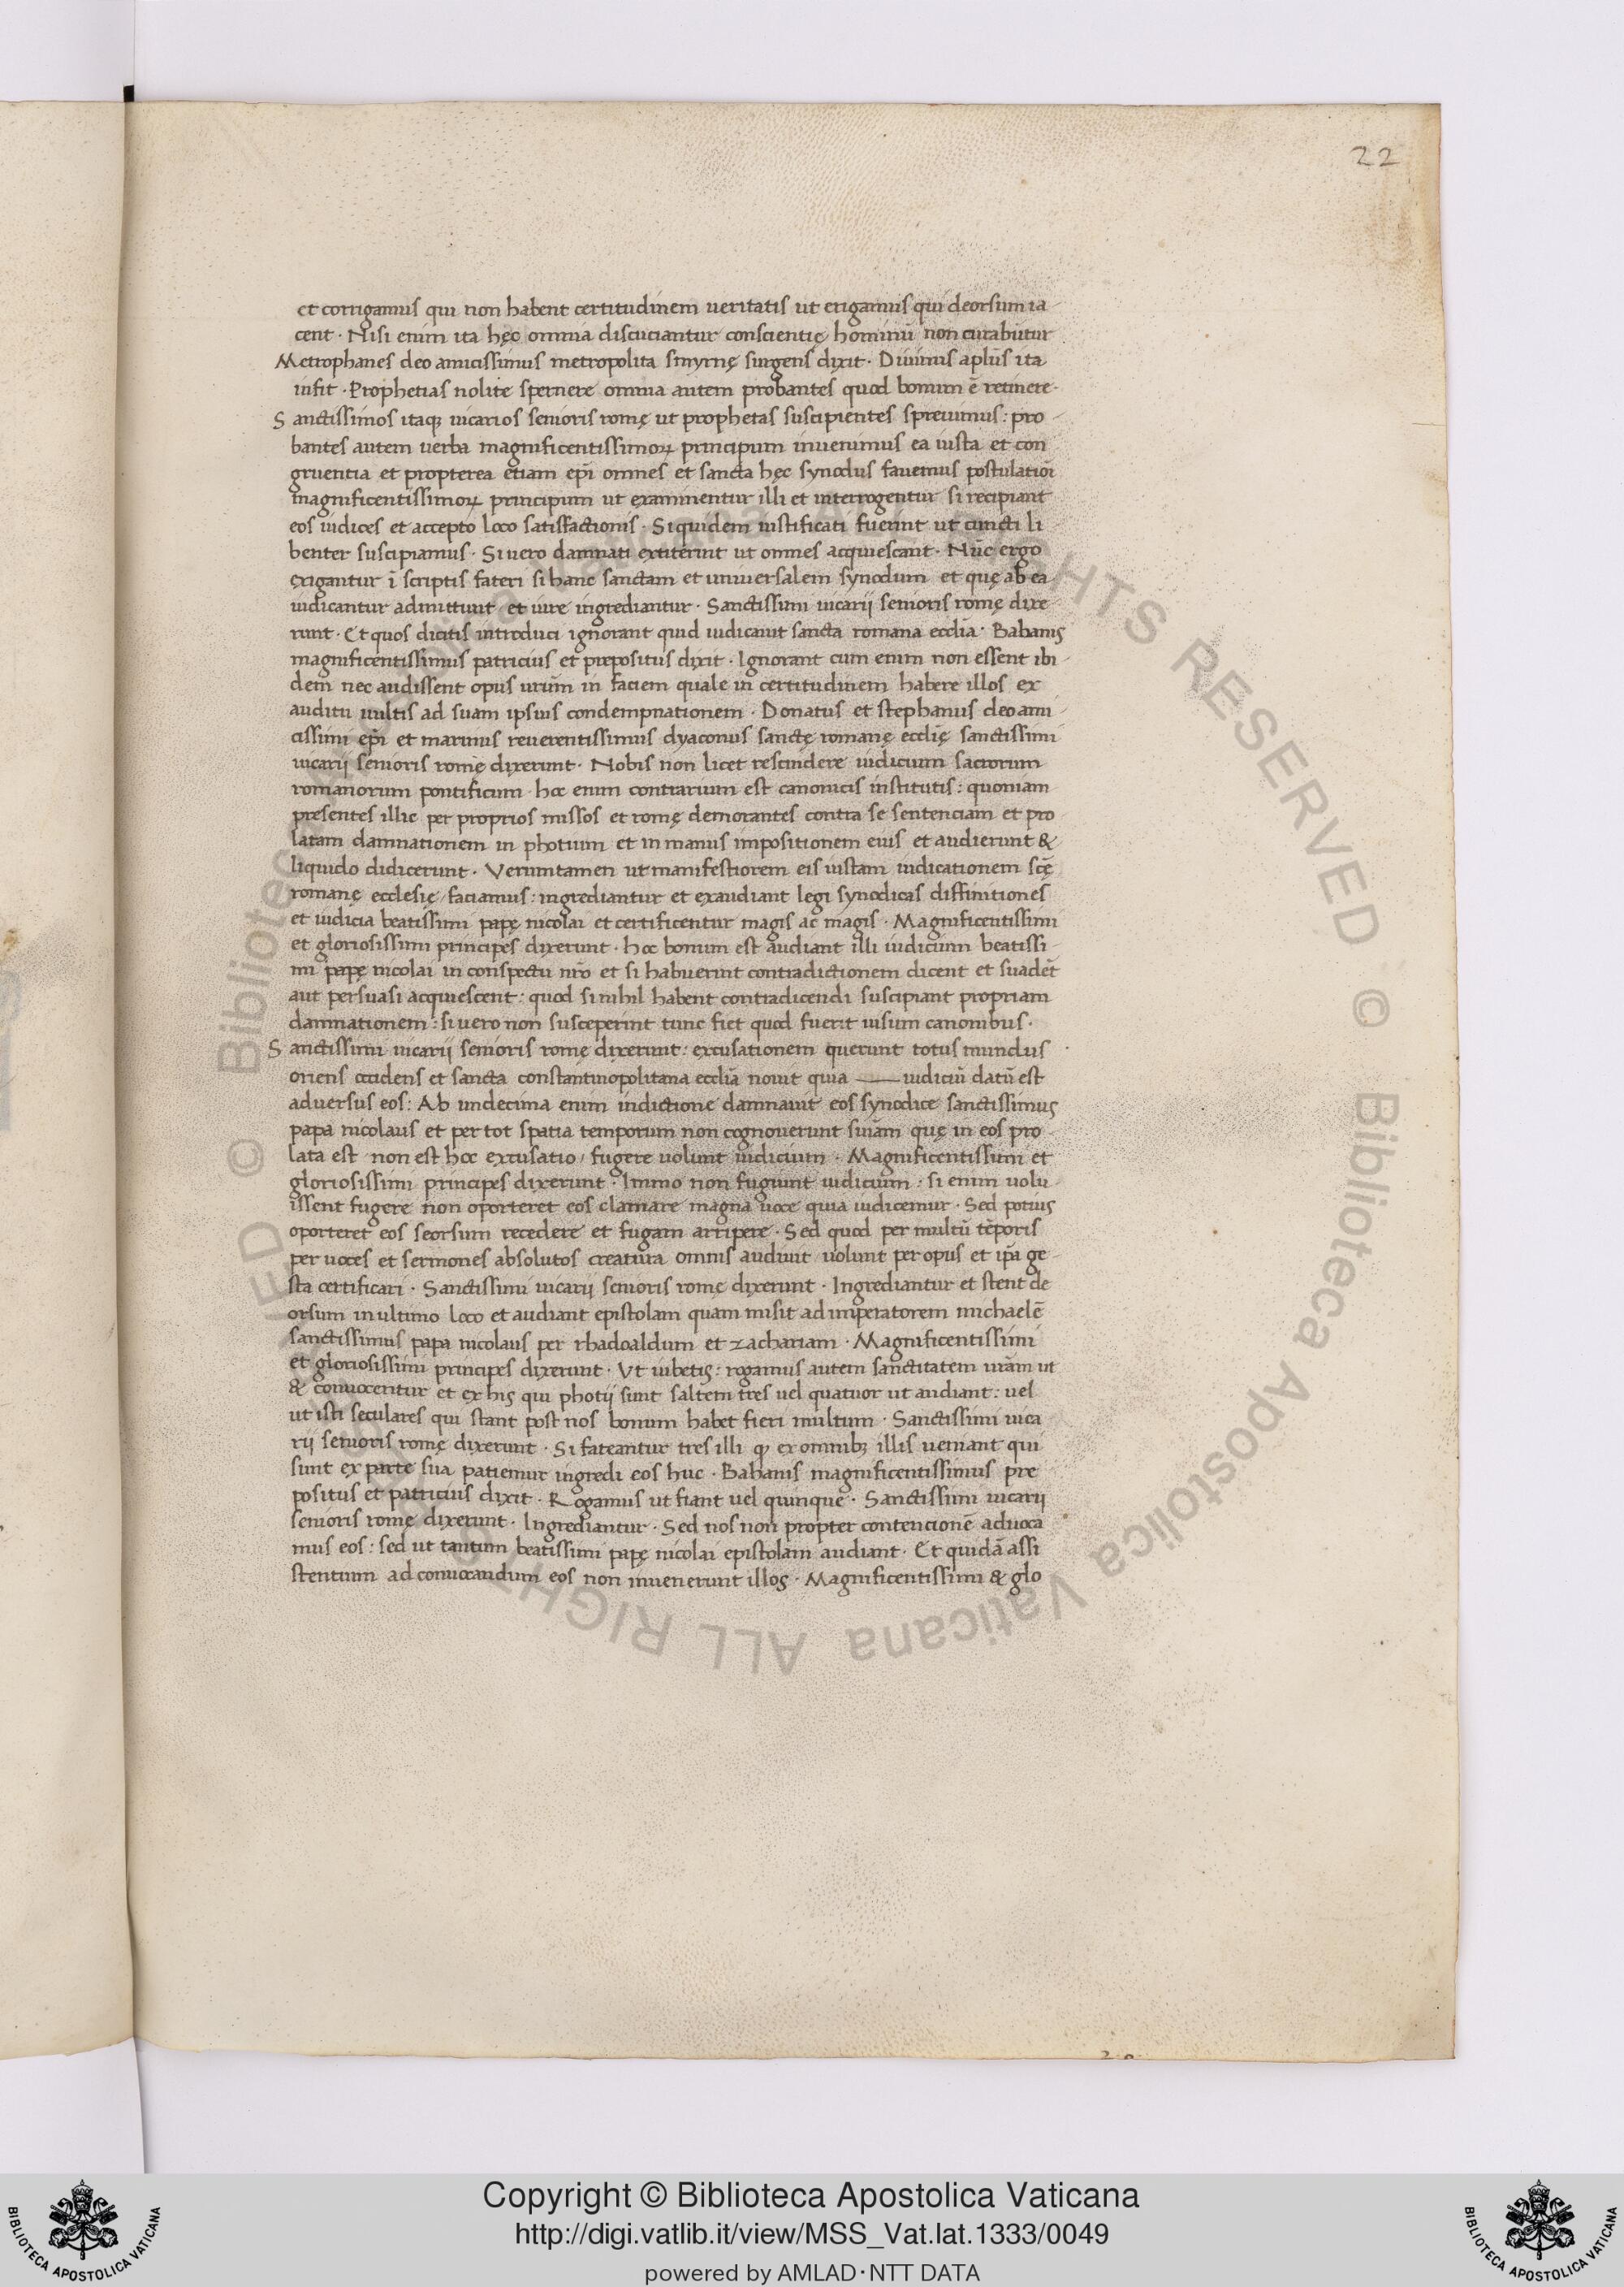 22
et corrigamus qui non habent certitudinem ueritatis ut erigamus qui deorsum ia
cent · Nisi enim ita hęc omnia discutiantur conscientię hominū non curabuntur
Metrophanes deo amicissimus metropolita smyrnę surgens dixit · Diuinus aplūs ita
infit · Prophetias nolite spernere omnia autem probantes quod bonum ē retinete ·
Sanctissimos itaqꝫ uicarios senioris romę ut prophetas suscipientes spreuimus : pro
bantes autem uerba magnificentissimoꝝ principum inuenimus ea iusta et con
gruentia et propterea etiam ep̄i omnes et sancta hęc synodus fauemus postulatiōi
magnificentissimoꝝ principum ut examinentur illi et interrogentur si recipiant
eos iudices et accepto loco satisfactionis · Siquidem iustificati fuerint ut cuncti li
benter suscipiamus · Si uero damnati extiterint ut omnes acquiescant · Nūc ergo
exigantur ī scriptis fateri si hanc sanctam et uniuersalem synodum et quę ab ea
iudicantur admittunt et iure ingrediantur · Sanctissimi uicarii senioris romę dixe
runt · Et quos dicitis introduci ignorant quid iudicauit sancta romana ecclīa · Bahanis
magnificentissimus patricius et prepositus dixit · Ignorant cum enim non essent ibi
dem nec audissent opus urūm in faciem quale in certitudinem habere illos ex
auditu uultis ad suam ipsius condempnationem · Donatus et stephanus deo ami
cissimi ep̄i et marinus reuerentissimus dyaconus sanctę romanę ecclīę sanctissimi
uicarii senioris romę dixerunt · Nobis non licet rescindere iudicium sacrorum
romanorum pontificum · hoc enim contrarium est canonicis institutis : quoniam
presentes illic per proprios missos et romę demorantes contra se sentenciam et pro
latam damnationem in photium et in manus impositionem eius et audierunt &
liquido didicerunt · Veruntamen ut manifestiorem eis iustam iudicationem scę̄
romanę ecclesię faciamus : ingrediantur et exaudiant legi synodicas diffinitiones
et iudicia beatissimi papę nicolai et certificentur magis ac magis · Magnificentissimi
et gloriosissimi principes dixerunt · hoc bonum est audiant illi iudicium beatissi
mi papę nicolai in conspectu nrō et si habuerint contradictionem dicent et suadēt
aut persuasi acquiescent : quod si nihil habent contradicendi suscipiant propriam
damnationem : si uero non susceperint tunc fiet quod fuerit uisum canonibus ·
Sanctissimi uicarii senioris romę dixerunt : excusationem querunt totus mundus
oriens occidens et sancta constantinopolitana ecclīa nouit quia —— iudiciū datū est
aduersus eos : Ab undecima enim indictione damnauit eos synodice sanctissimus
papa nicolaus et per tot spatia temporum non cognouerunt suīam quę in eos pro
lata est non est hoc excusatio / fugere uolunt iudicium · Magnificentissimi et
gloriosissimi principes dixerunt · Immo non fugiunt iudicium : si enim uolu
issent fugere non oporteret eos clamare magna uoce quia iudicemur · Sed potius
oporteret eos seorsum recedere et fugam arripere · Sed quod per multū tēporis
per uoces et sermones absolutos creatura omnis audiuit uolunt per opus et ip̄a ge
sta certificari · Sanctissimi uicarii senioris romę dixerunt · Ingrediantur et stent de
orsum in ultimo loco et audiant epistolam quam misit ad imperatorem michaelē
sanctissimus papa nicolaus per rhadoaldum et zachariam · Magnificentissimi
et gloriosissimi principes dixerunt · Vt iubetis : rogamus autem sanctitatem urām ut
& conuocentur et ex his qui photii sunt saltem tres uel quatuor ut audiant : uel
ut isti seculares qui stant post nos bonum habet fieri multum · Sanctissimi uica
rii senioris romę dixerunt · Si fateantur tres illi qꝫ ex omnibꝫ illis ueniant qui
sunt ex parte sua patiemur ingredi eos huc · Bahanis magnificentissimus pre
positus et patricius dixit · Rogamus ut fiant uel quinque · Sanctissimi uicarii
senioris romę dixerunt · Ingrediantur · Sed nos non propter contencionē aduoca
mus eos : sed ut tantum beatissimi papę nicolai epistolam audiant · Et quidā assi
stentium ad conuocandum eos non inuenerunt illos · Magnificentissimi & glo
© Biblioteca Apostolica Vaticana ALL RIGHTS RESERVED © Biblioteca Apostolica Vaticana ALL RIGHTS RESERVED
Copyright © Biblioteca Apostolica Vaticana
http://digi.vatlib.it/view/MSS_Vat.lat.1333/0049
powered by AMLAD·NTT DATA
BIBLIOTECA APOSTOLICA VATICANA
BIBLIOTECA APOSTOLICA VATICANA